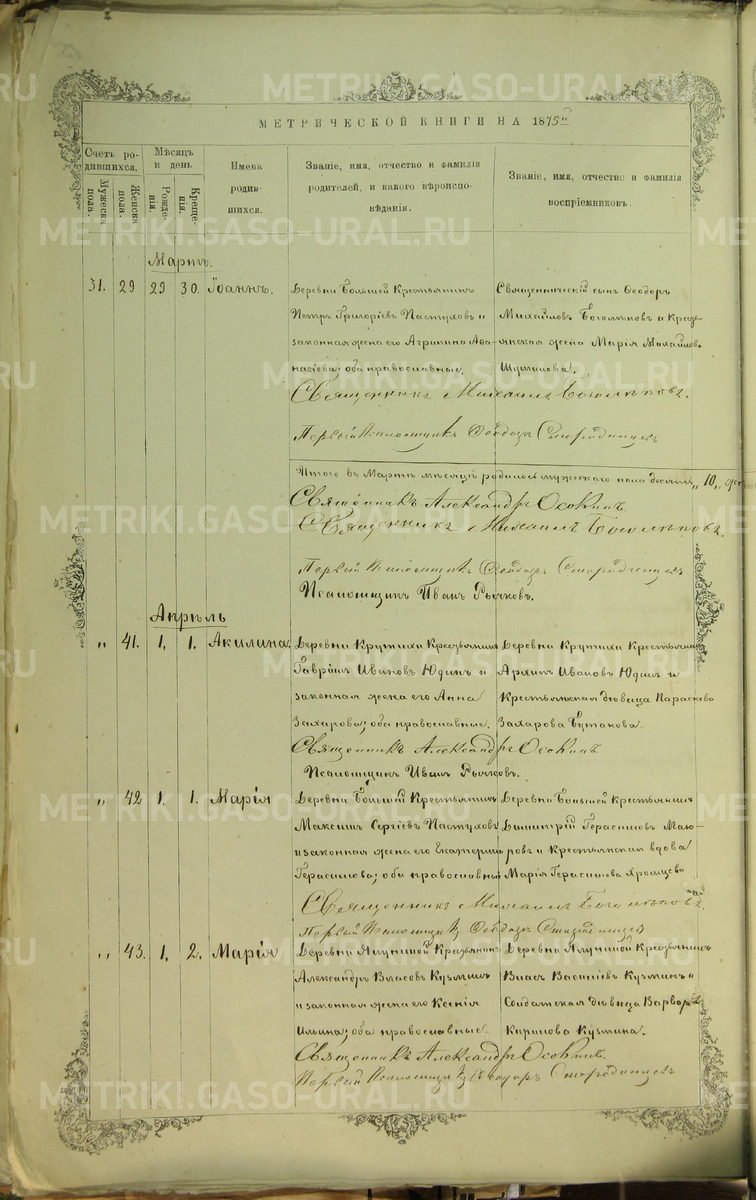 METRIKI.GASO-URAL.RU
МЕТРИЧЕСКОЙ КНИГИ НА 1875й
Счетъ родившихся.
Мужеска пола.
Женска пола.
Мѣсяцъ и день
Рожденія.
Крещенія.
Имена родившихся.
Званіе, имя, отчество и фамилія
родителей, и какого вѣроисповѣданія.
Званіе, имя, отчество и фамилія
воспріемниковъ.
Мартъ.
31. 29 29 30. Іоаннъ.
Деревни Большей Крестьянинъ
Петръ Григоріевъ Пастуховъ и
законная жена его Агрипина Аѳа-
насіева; оба православные.
Священническій сынъ Ѳеодоръ
Михайловъ Боголѣповъ и Кресть-
янская жена Марія Михайлова
Священникъ Михаилъ Боголѣповъ.
Первый Псаломщикъ Ѳеодоръ Смородинцевъ
Итого въ Мартѣ мѣсяцѣ родилось мужескаго пола десять „10„
Священникъ Александръ Осокинъ
Священникъ Михаилъ Боголѣповъ.
Первый Псаломщикъ Ѳеодоръ Смородинцевъ
Псаломщикъ Иванъ Рычковъ.
Апрѣль
„ 41. 1. 1. Акилина.
Деревни Крутихи Крестьянинъ
Гавріилъ Ивановъ Юдинъ и
законная жена его Анна
Захарова; оба православные.
Деревни Крутихи Крестьянинъ
Архипъ Ивановъ Юдинъ и
Крестьянская дѣвица Параскева
Захарова Бутакова.
Священникъ Александръ Осокинъ
Псаломщикъ Иванъ Рычковъ.
„ 42 1. 1. Марія
Деревни Большей Крестьянинъ
Максимъ Сергіевъ Пастуховъ
и законная жена его Екатерина
Герасимова; оба православные
Деревни Большей Крестьянинъ
Димитрій Герасимовъ Маю-
ровъ и Крестьянская вдова
Марія Герасимова Хромцева
Священникъ Михаилъ Боголѣповъ.
Первый Псаломщикъ Ѳеодоръ Смородинцевъ
„ 43. 1, 2. Марія
Деревни Ялуниной Крестьянинъ
Александръ Власовъ Кузминъ
и законная жена его Ксенія
Ильина; оба православные.
Деревни Ялуниной Крестьянинъ
Власъ Василіевъ Кузминъ и
Солдатская дѣвица Варвара
Кирилова Кузмина.
Священникъ Александръ Осокинъ.
Первый Псаломщикъ Ѳеодоръ Смородинцевъ